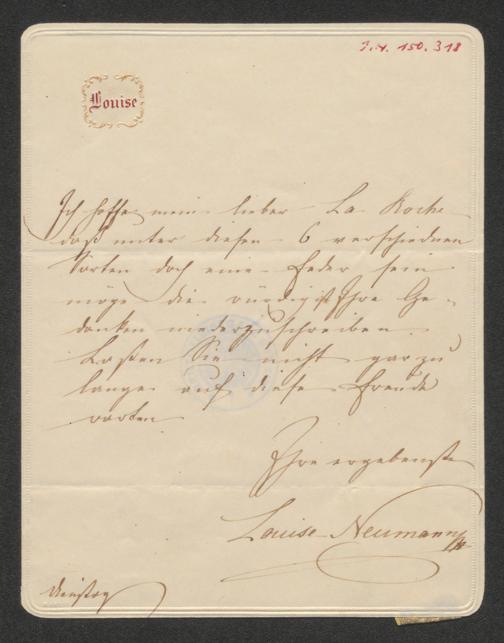 I.N. 150.318
Louise
Ich hoffe mein lieber La Roche
daß unter diesen 6 verschiednen
Sorten doch eine Feder sein
möge die würdig ist Ihre Ge-
danken niederzuschreiben.
Laßen Sie nicht gar zu
lange auf diese Freude
warten
Ihre ergebenste
Louise Neumann
Dienstag